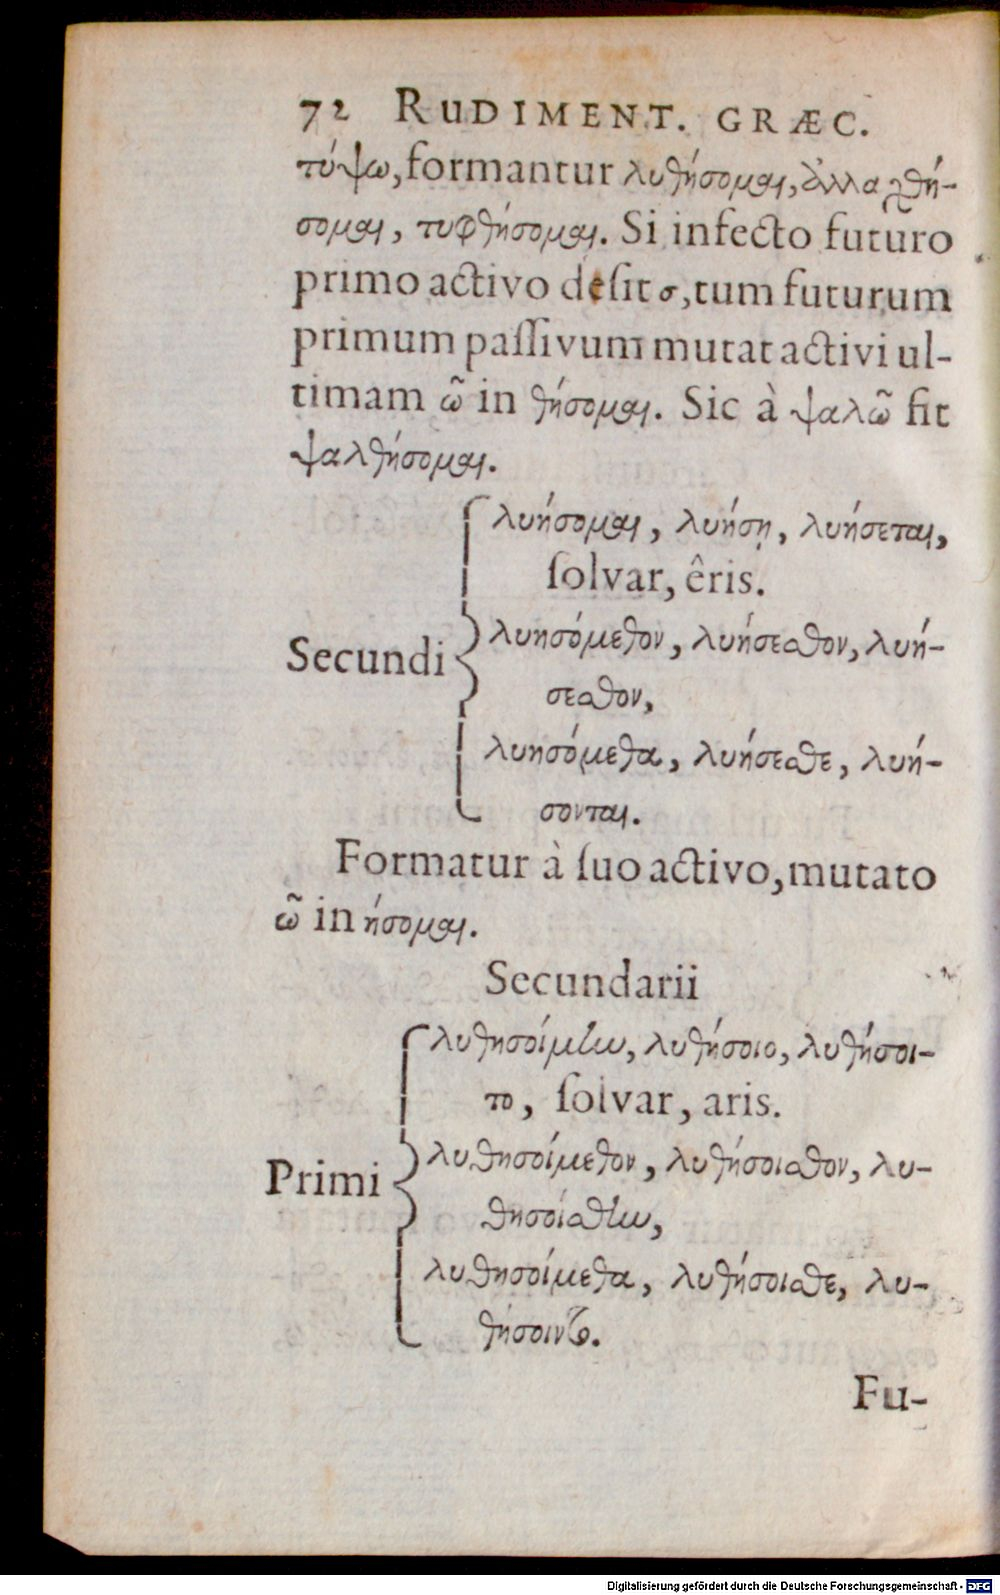 72 RUDIMENT. GRÆC.
τύψω, formantur λυθήσομαι, ἀλλαχθή-
σομαι, τυφθήσομαι. Si infecto futuro
primo activo desit σ, tum futurum
primum paſſivum mutat activi ul-
timam ῶ in θήσομαι. Sic à ψαλῶ fit
ψαλθήσομαι.
λυήσομαι, λυήσῃ, λυήσεται,
ſolvar, êris.
Secundi λυησόμεθον, λυήσεσθον, λυή-
σεσθον,
λυησόμεθα, λυήσεσθε, λυή-
σονται.
Formatur à ſuo activo, mutato
ῶ in ήσομαι.
Secundarii
λυθησοίμην, λυθήσοιο, λυθήσοι-
το, ſolvar, aris.
Primi λυθησοίμεθον, λυθήσοισθον, λυ-
θησοίσθην,
λυθησοίμεθα, λυθήσοισθε, λυ-
θήσοιντο.
Fu-
Digitalisierung gefördert durch die Deutsche Forschungsgemeinschaft - DFG